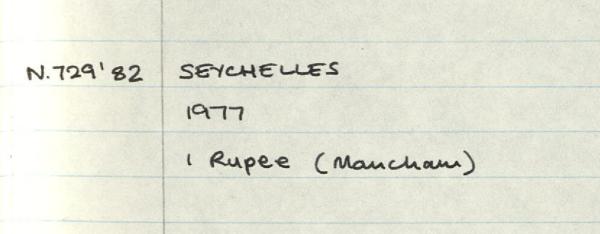 N.729'82 SEYCHELLES
1977
1 Rupee (Mancham)